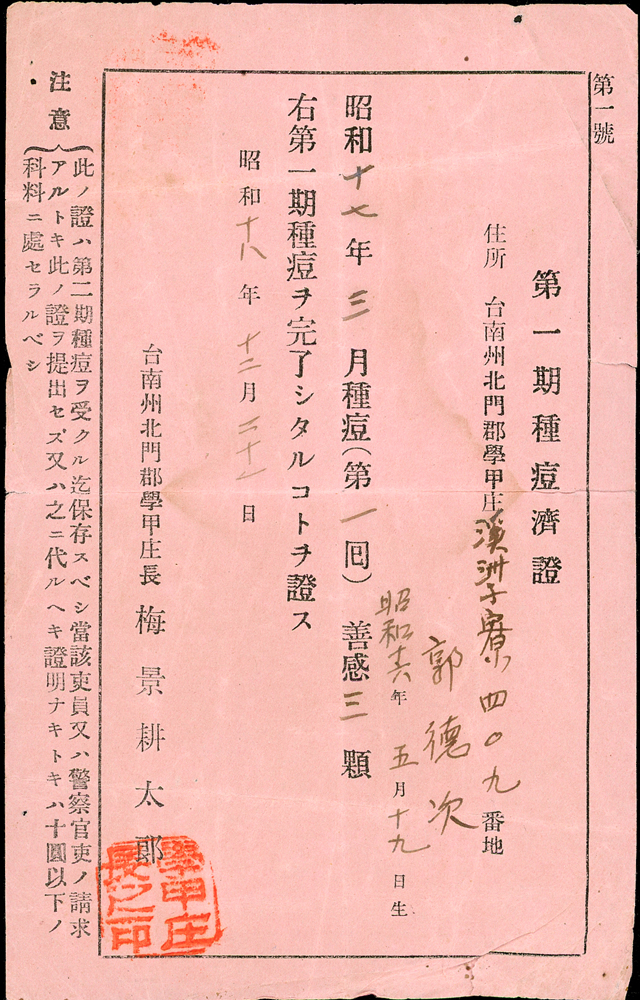 第一號
第一期種痘濟證
住所 台南州北門郡學甲庄渓洲子寮四〇九番地
郭德次
昭和十六年五月十九日生
昭和十七年三月種痘(第一囘)善感三顆
右第一期種痘ヲ完了シタルコトヲ證ス
昭和十八年十二月二十一日
台南州北門郡學甲庄長 梅景耕太郎
學甲庄
長之印
注意
此ノ證ハ第二期種痘ヲ受クル迄保存スベシ當該吏員又ハ警察官吏ノ請求
アルトキ此ノ證ヲ提出セズ又ハ之ニ代ルヘキ證明ナキトキハ十圓以下ノ
科料ニ處セラルベシ